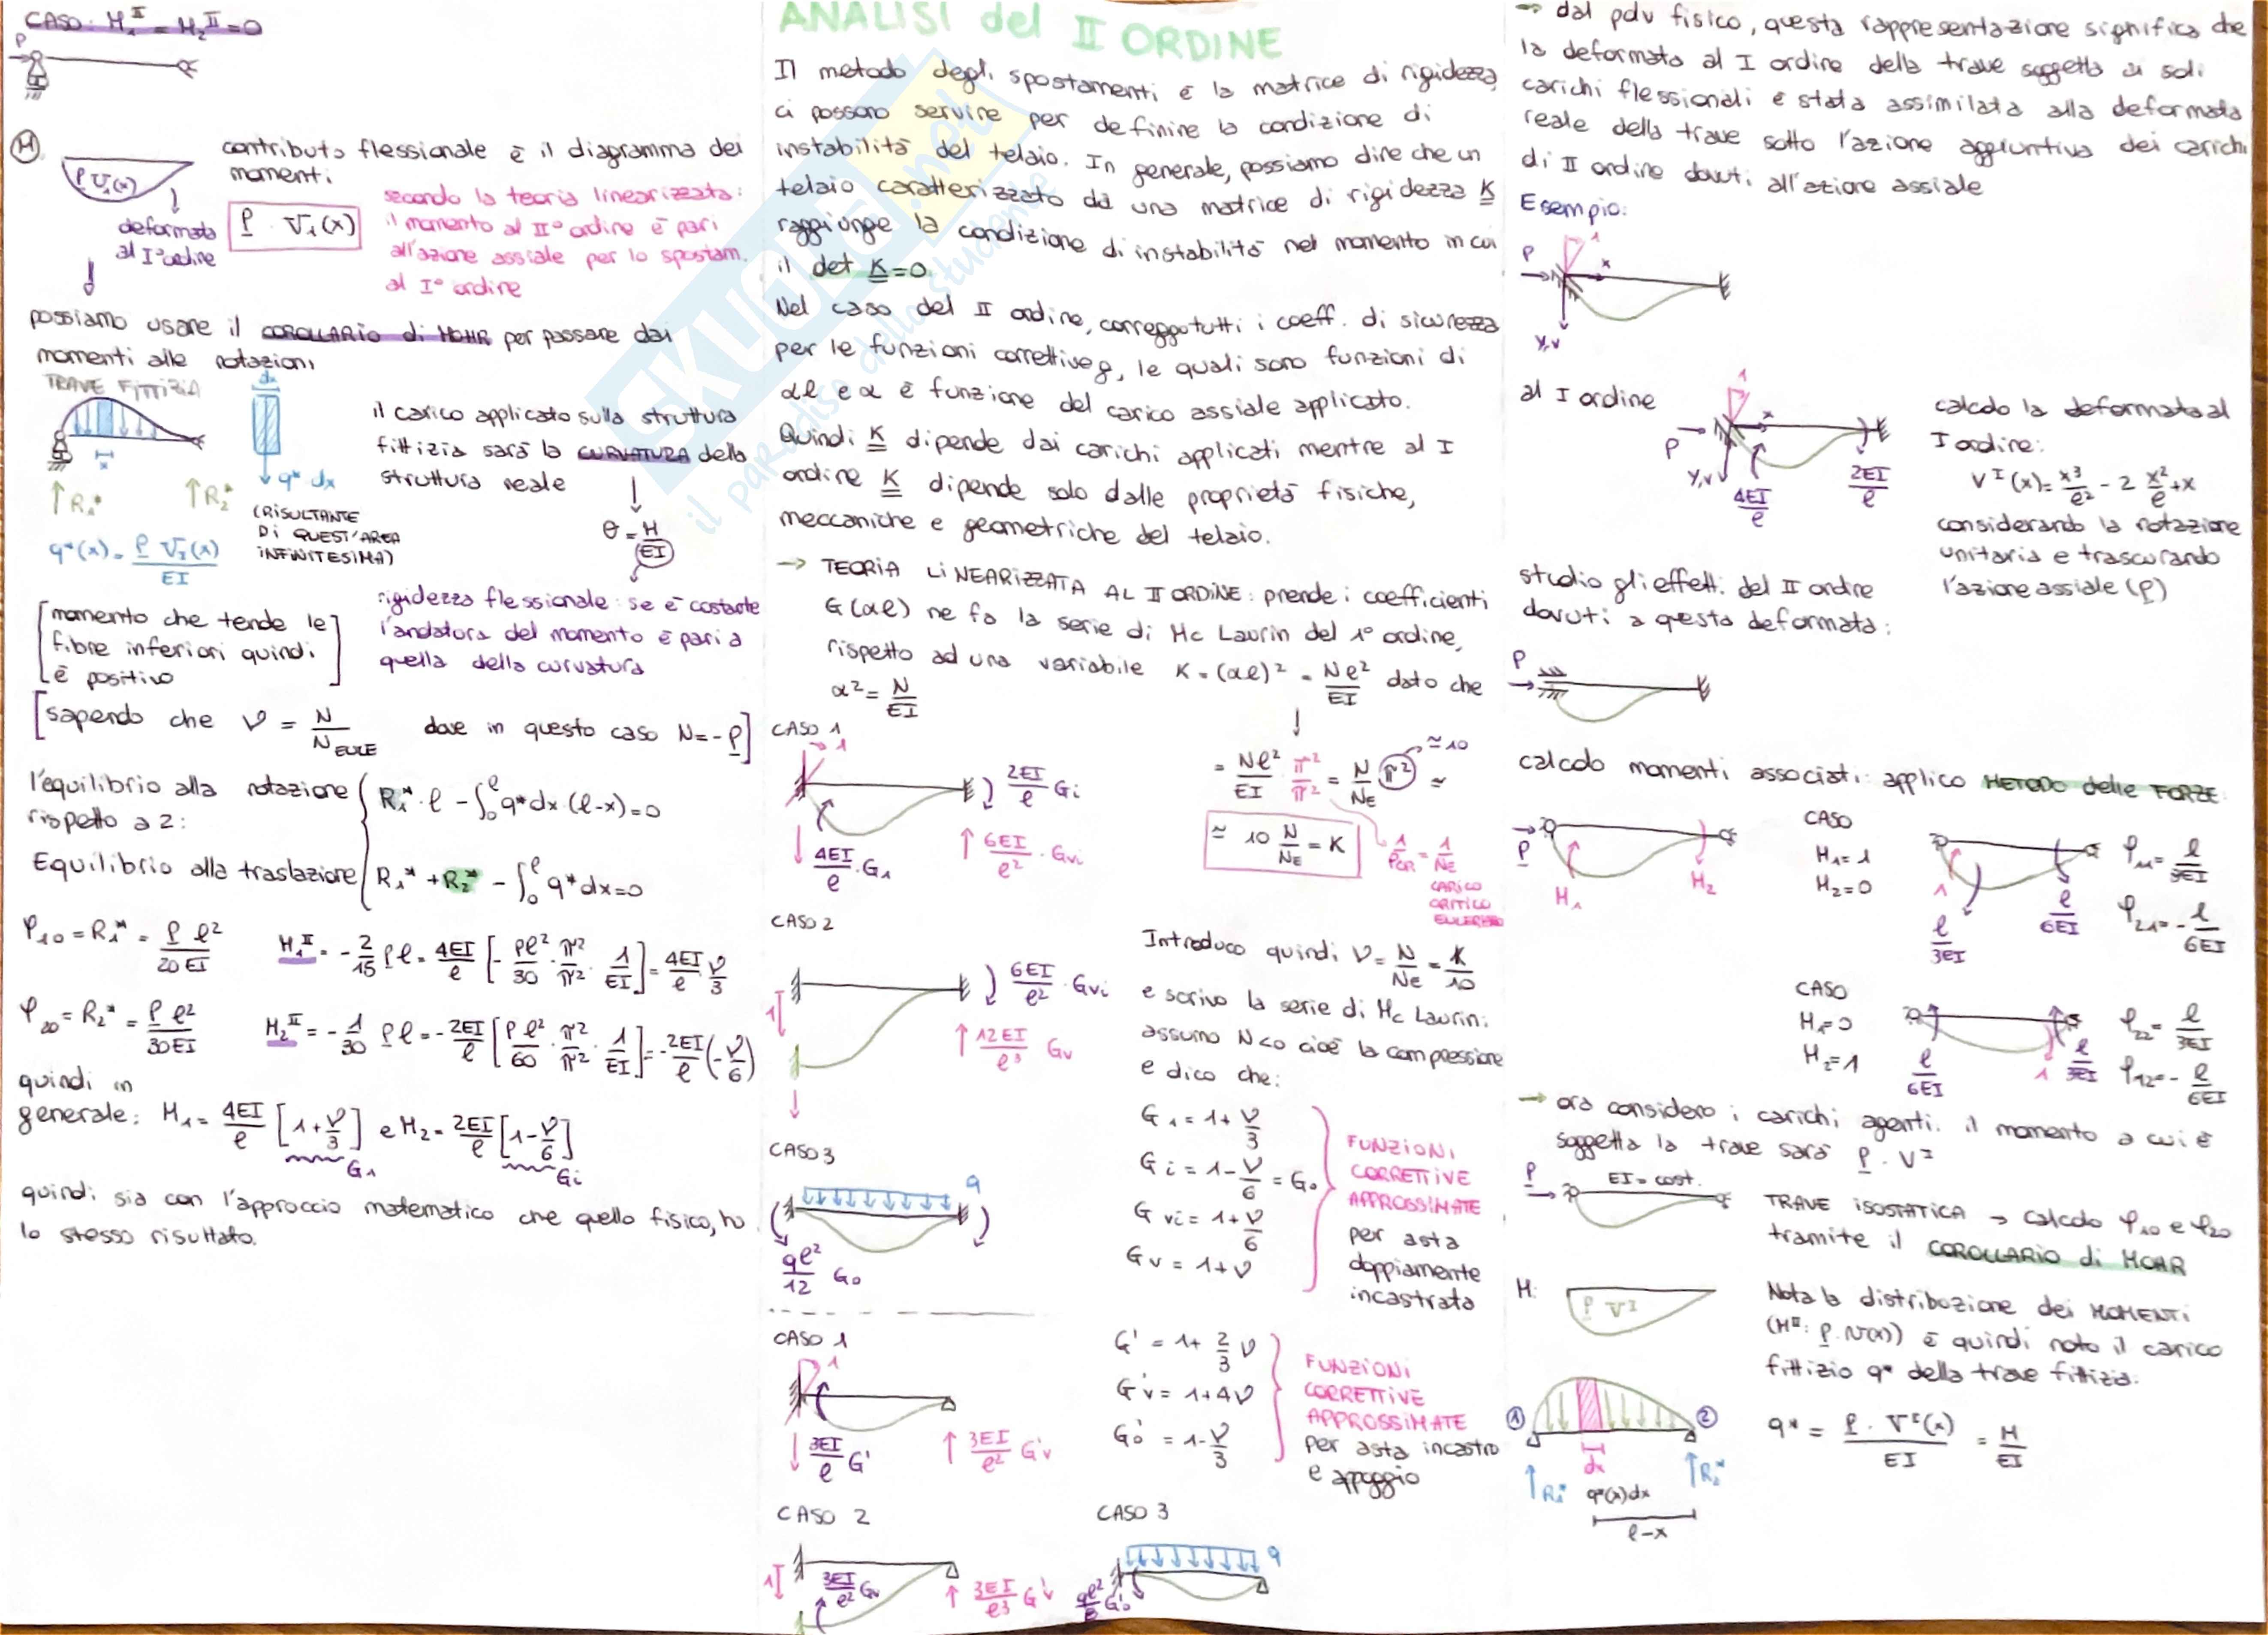 CASO: M₁ᴵᴵ = M₂ᴵᴵ = 0
P
M
P V₁(x)
deformata
al I°ordine
contributo flessionale è il diagramma dei
momenti
P · V₁(x)
secondo la teoria linearizzata:
il momento al II° ordine è pari
all'azione assiale per lo spostam.
al I° ordine
possiamo usare il COROLLARIO di MOHR per passare dai
momenti alle rotazioni
TRAVE FITTIZIA
dx
x
R₁*
R₂*
q* dx
(RISULTANTE
DI QUEST'AREA
INFINITESIMA)
q*(x) = P V₁(x) / EI
il carico applicato sulla struttura
fittizia sarà la CURVATURA della
struttura reale
θ = M / EI
rigidezza flessionale: se è costante
l'andatura del momento è pari a
quella della curvatura
[momento che tende le
fibre inferiori quindi
è positivo]
[sapendo che ν = N / N EULE dove in questo caso N = -P]
l'equilibrio alla rotazione
rispetto a 2:
R₁* · l - ∫₀ˡ q* dx · (l-x) = 0
Equilibrio alla traslazione
R₁* + R₂* - ∫₀ˡ q* dx = 0
φ₁₀ = R₁* = P l² / 20 EI
M₁ᴵᴵ = - 2/15 P l = 4EI/l [- Pl²/30 · π²/π² · 1/EI] = 4EI/l ν/3
φ₂₀ = R₂* = P l² / 30EI
M₂ᴵᴵ = - 1/30 P l = - 2EI/l [P l²/60 · π²/π² · 1/EI] = - 2EI/l (- ν/6)
quindi in
generale: M₁ = 4EI/l [1 + ν/3] e M₂ = 2EI/l [1 - ν/6]
G₁
Gi
quindi sia con l'approccio matematico che quello fisico, ho
lo stesso risultato.
ANALISI del II ORDINE
Il metodo degli spostamenti e la matrice di rigidezza
ci possono servire per definire la condizione di
instabilità del telaio. In generale, possiamo dire che un
telaio caratterizzato da una matrice di rigidezza K
raggiunge la condizione di instabilità nel momento in cui
il det K = 0.
Nel caso del II ordine, correggo tutti i coeff. di sicurezza
per le funzioni correttive g, le quali sono funzioni di
αl e α è funzione del carico assiale applicato.
Quindi K dipende dai carichi applicati mentre al I
ordine K dipende solo dalle proprietà fisiche,
meccaniche e geometriche del telaio.
→ TEORIA LINEARIZZATA AL II ORDINE: prende i coefficienti
G(αl) ne fa la serie di Mc Laurin del 1° ordine,
rispetto ad una variabile K = (αl)² = Nl²/EI dato che
α² = N/EI
CASO 1
1
2EI/l Gi
4EI/l · G₁
6EI/l² · Gvi
= Nl²/EI π²/π² = N/N_E π² ≃
≃ 10
≃ 10 N/N_E = K
1/Pcr = 1/N_E
CARICO
CRITICO
EULERIANO
CASO 2
1
6EI/l² · Gvi
12EI/l³ Gv
Introduco quindi ν = N/N_E = K/10
e scrivo la serie di Mc Laurin:
assumo N<0 cioè la compressione
e dico che:
G₁ = 1 + ν/3
Gi = 1 - ν/6 = G₀
Gvi = 1 + ν/6
Gv = 1 + ν
FUNZIONI
CORRETTIVE
APPROSSIMATE
per asta
doppiamente
incastrata
CASO 3
q
ql²/12 G₀
CASO 1
1
3EI/l G'
3EI/l² G'v
G' = 1 + 2/3 ν
G'v = 1 + 4ν
G'₀ = 1 - ν/3
FUNZIONI
CORRETTIVE
APPROSSIMATE
per asta incastro
e appoggio
CASO 2
1
3EI/l² Gv
3EI/l³ G'v
CASO 3
q
ql²/8 G'₀
→ dal pdv fisico, questa rappresentazione significa che
la deformata al I ordine della trave soggetta ai soli
carichi flessionali è stata assimilata alla deformata
reale della trave sotto l'azione aggiuntiva dei carichi
di II ordine dovuti all'azione assiale
Esempio:
1
P
x
y,v
al I ordine
1
P
x
y,v
4EI/l
2EI/l
calcolo la deformata al
I ordine:
Vᴵ(x) = x³/l² - 2 x²/l + x
considerando la rotazione
unitaria e trascurando
l'azione assiale (P)
studio gli effetti del II ordine
dovuti a questa deformata:
P
calcolo momenti associati: applico METODO delle FORZE
P
M₁
M₂
CASO
M₁ = 1
M₂ = 0
1
l/3EI
l/6EI
φ₁₁ = l/3EI
φ₂₁ = - l/6EI
CASO
M₁ = 0
M₂ = 1
l/6EI
1
l/3EI
φ₂₂ = l/3EI
φ₁₂ = - l/6EI
→ ora considero i carichi agenti: il momento a cui è
soggetta la trave sarà P · Vᴵ
P
EI = cost.
TRAVE ISOSTATICA → calcolo φ₁₀ e φ₂₀
tramite il COROLLARIO di MOHR
M:
P Vᴵ
Nota la distribuzione dei MOMENTI
(Mᴵᴵ: P · v(x)) è quindi noto il carico
fittizio q* della trave fittizia.
1
2
dx
R₁*
R₂*
q*(x)dx
l-x
q* = P · Vᴵ(x) / EI = M / EI
SKUOLA.net
il paradiso dello studente